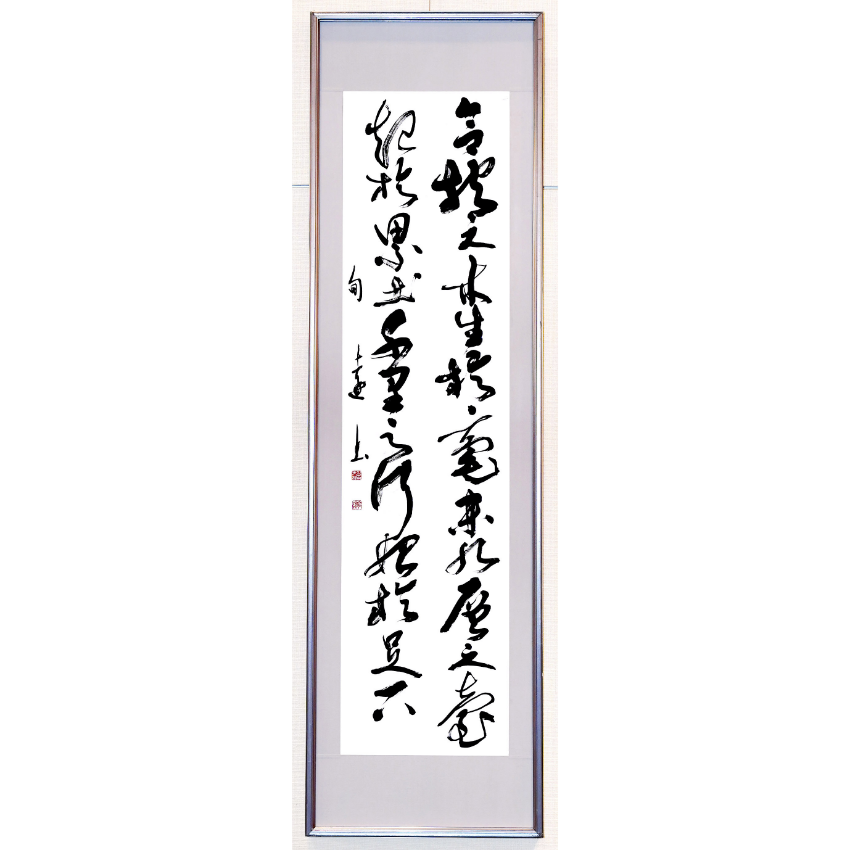 合抱之木生於毫末九層之臺
起於累土千里之行始於足下